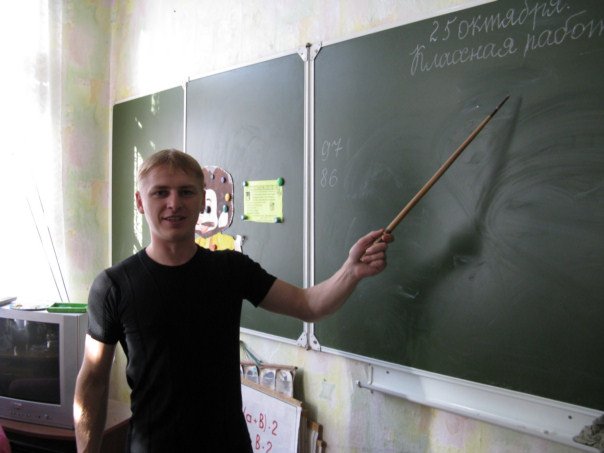 25 октября.
Классная работ
97
86
(а + в) · 2
в · 2